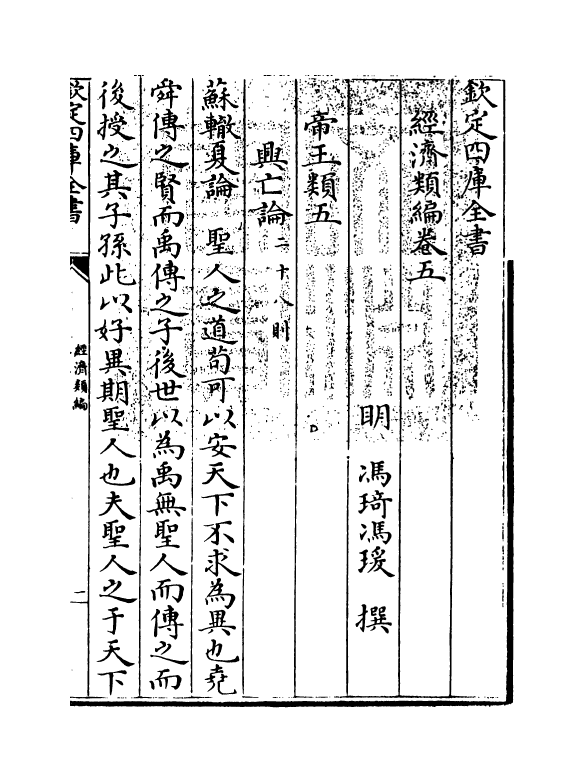 欽定四庫全書
經濟類編卷五
明 馮琦馮瑗 撰
帝王類五
興亡論二十八則
蘇轍夏論 聖人之道苟可以安天下不求為異也堯
舜傳之賢而禹傳之子後世以為禹無聖人而傳之而
後授之其子孫此以好異期聖人也夫聖人之于天下
欽定四庫全書
經濟類編
二